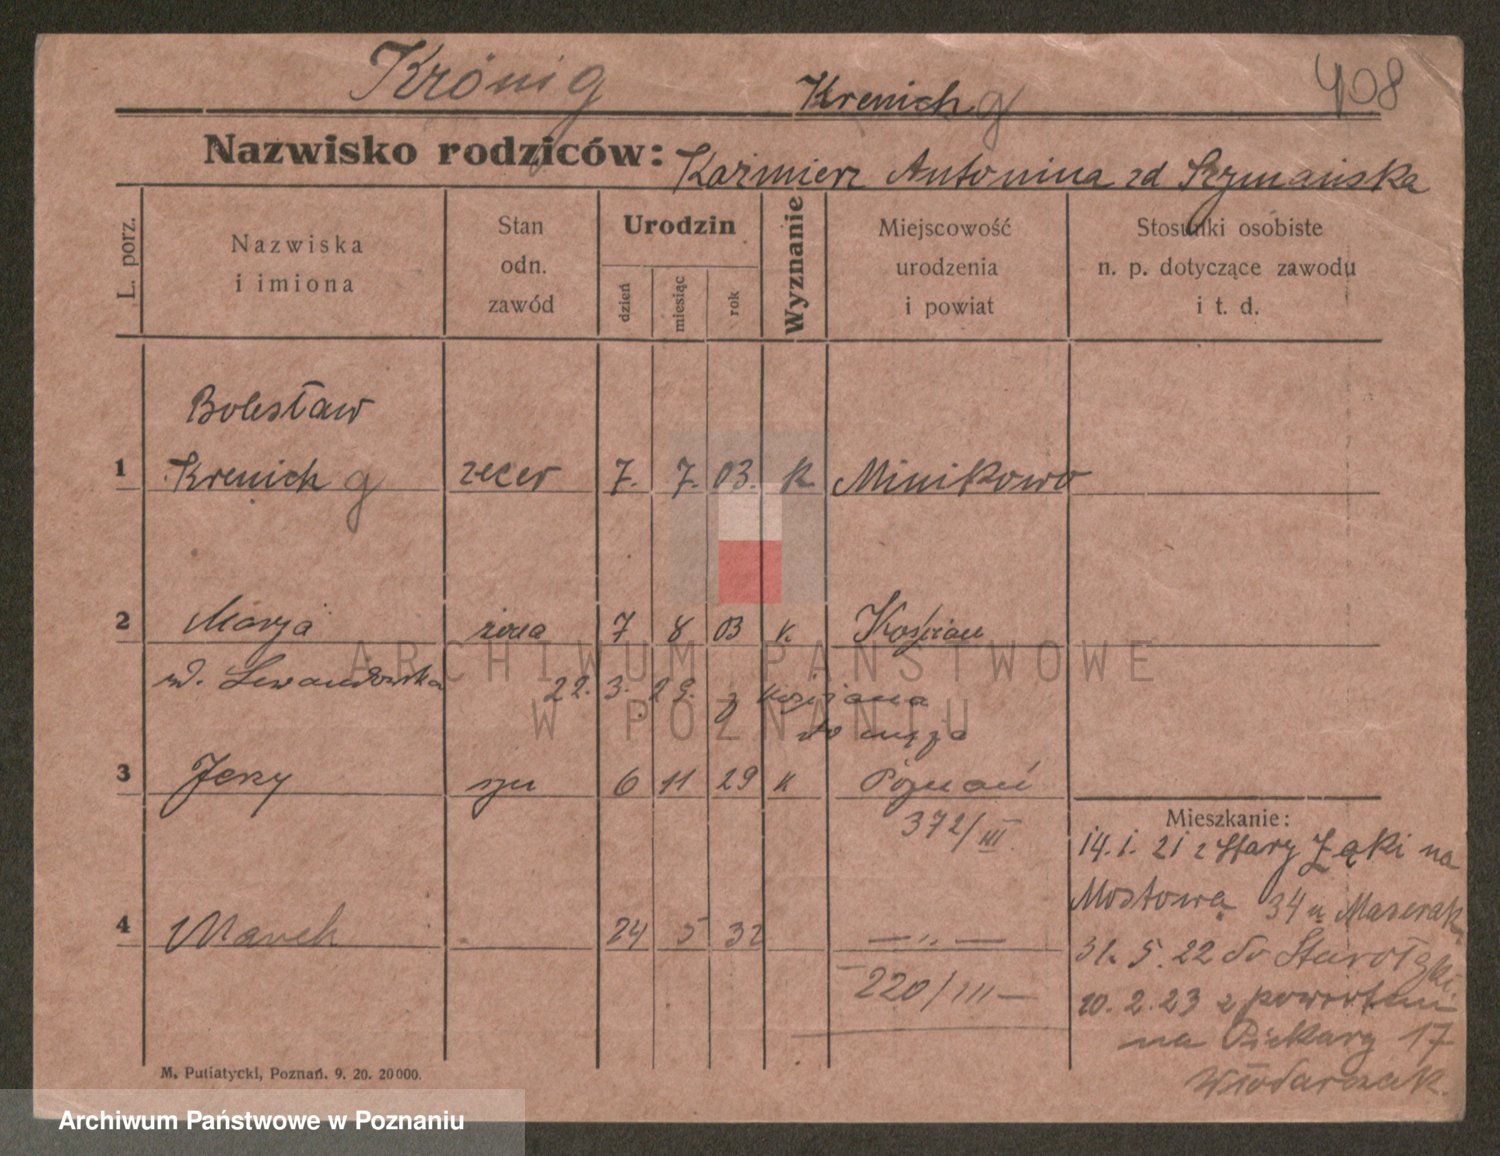 Krönig
Krenich g
408
Nazwisko rodziców: Kaźmierz Antonina zd Szymańska
L. porz.
Nazwiska
i imiona
Stan
odn.
zawód
Urodzin
dzień
miesiąc
rok
Wyznanie
Miejscowość
urodzenia
i powiat
Stosunki osobiste
n. p. dotyczące zawodu
i t. d.
Bolesław
1 Krenich g zecer 7. 7. 03. k. Minikowo
2 Marja żona 7 8 03 k. Kościan
ur. Lewandowska 22. 3. 29. z Kościana
do męża
3 Jerzy syn 6 11 29 k Poznań
372/III
Mieszkanie:
14. 1. 21 z Stary Łąki na
Mostową 34 u Maserak
4 Marek 24 5 32 — „ —
31. 5. 22 do Starołęki
220/III —
10. 2. 23 z powrotem
na Piekary 17
Włodarczak.
M. Putiatycki, Poznań. 9. 20. 20000.
ARCHIWUM PAŃSTWOWE
W POZNANIU
Archiwum Państwowe w Poznaniu